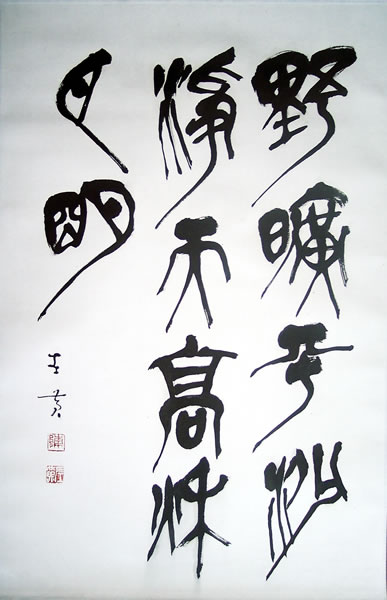 野曠平沙
淨天高秋
月明